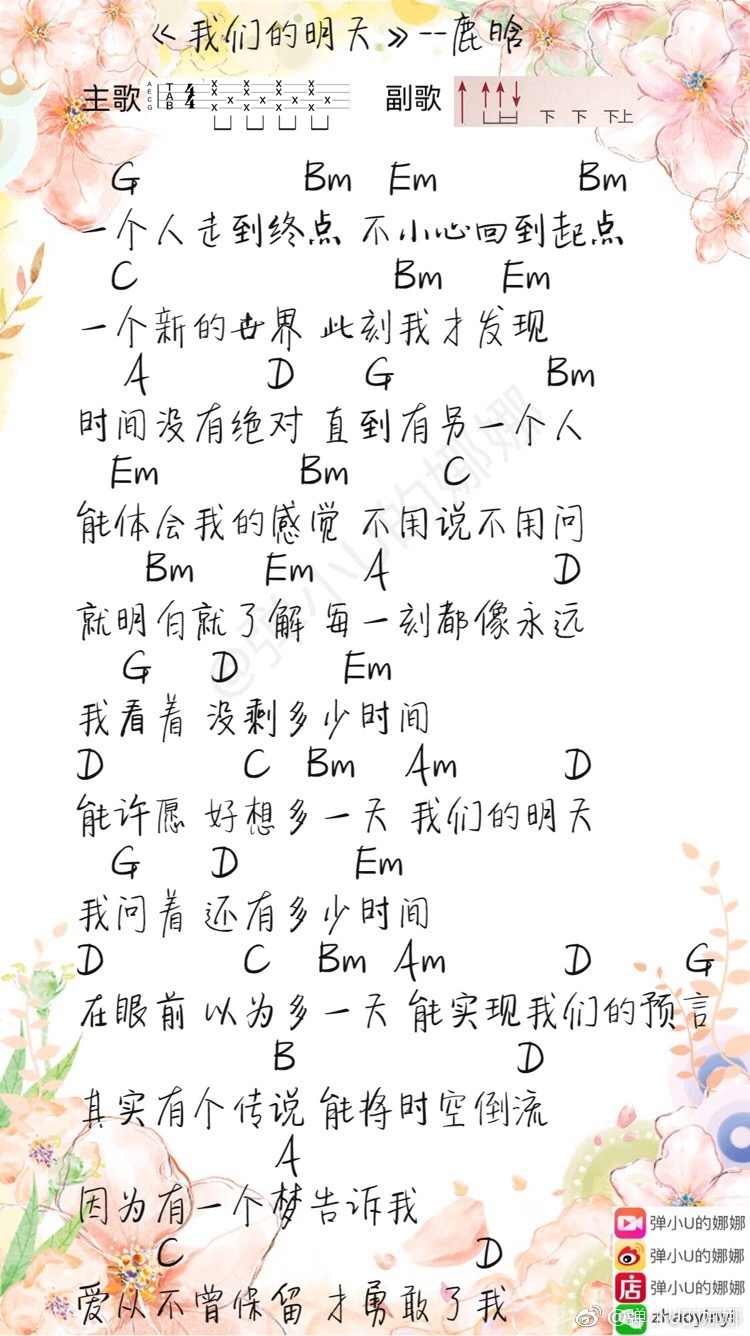 《我们的明天》--鹿晗
主歌 A E C G T A B 4 4 副歌 下 下 下上
G Bm Em Bm
一个人走到终点 不小心回到起点
C Bm Em
一个新的世界 此刻我才发现
A D G Bm
时间没有绝对 直到有另一个人
Em Bm C
能体会我的感觉 不用说不用问
Bm Em A D
就明白就了解 每一刻都像永远
G D Em
我看着 没剩多少时间
D C Bm Am D
能许愿 好想多一天 我们的明天
G D Em
我问着 还有多少时间
D C Bm Am D G
在眼前 以为多一天 能实现我们的预言
B D
其实有个传说 能将时空倒流
A
因为有一个梦告诉我
C D
爱从不曾保留 才勇敢了我
@弹小U的娜娜
弹小U的娜娜
弹小U的娜娜
店 弹小U的娜娜
zhaoyinyi
@弹小U的娜娜